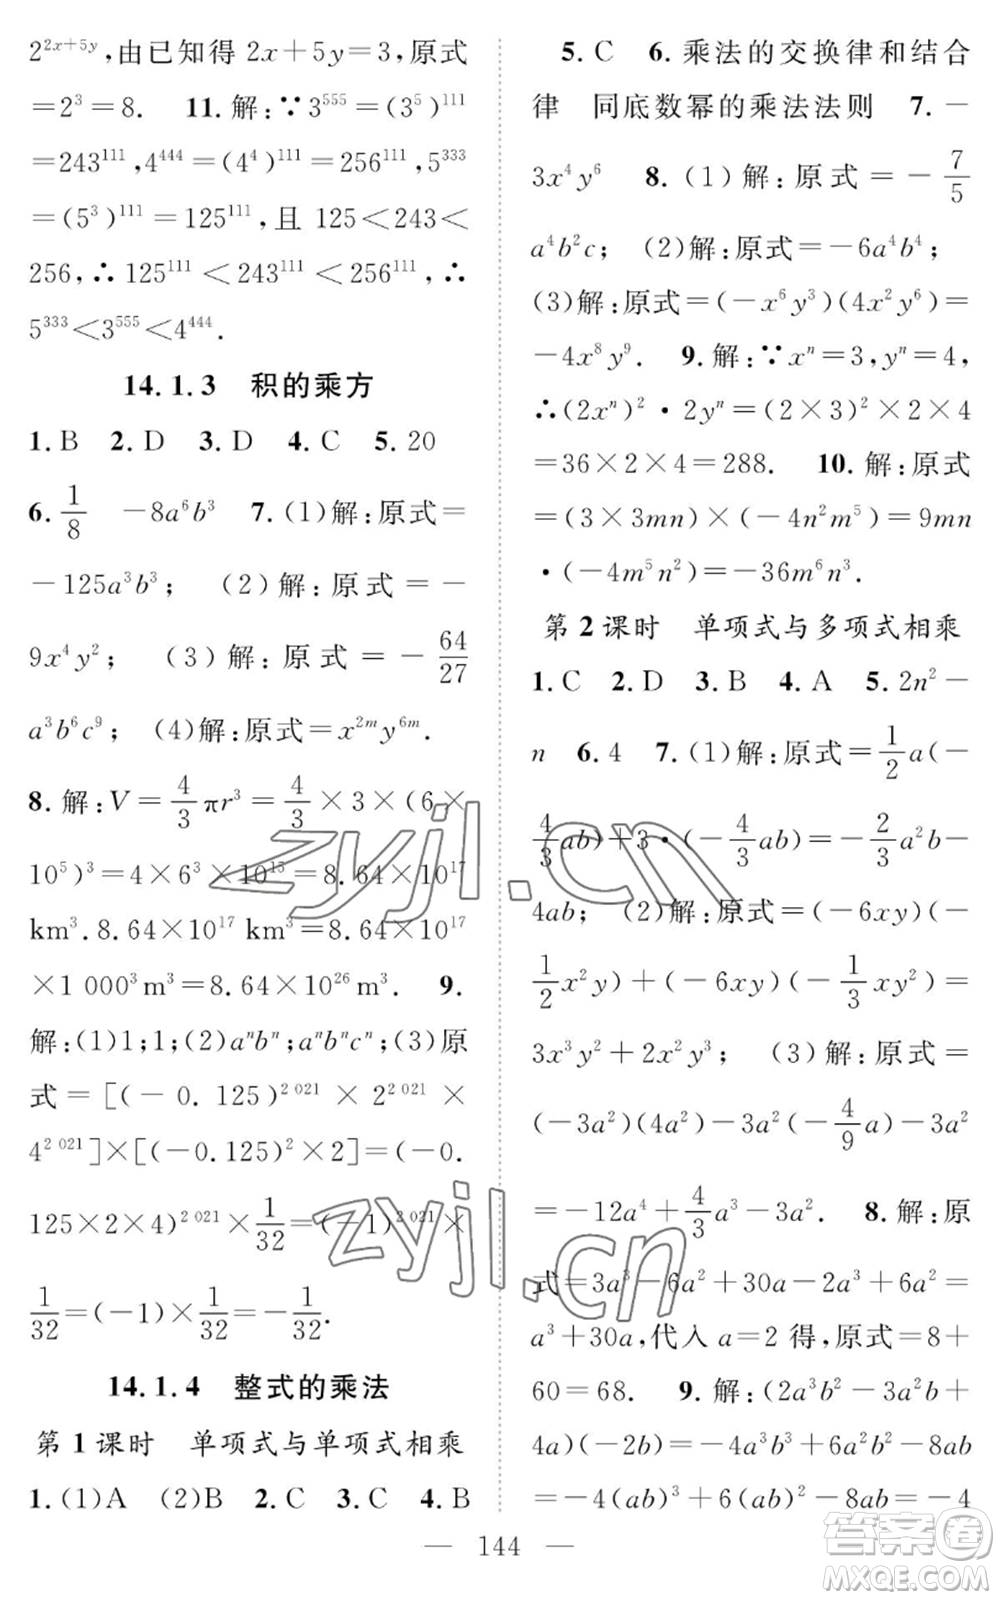 2^{2x+5y},由已知得 2x+5y=3,原式
=2^3=8. 11.解:∵3^{555}=(3^5)^{111}
=243^{111},4^{444}=(4^4)^{111}=256^{111},5^{333}
=(5^3)^{111}=125^{111},且 125<243<
256,∴125^{111}<243^{111}<256^{111},∴
5^{333}<3^{555}<4^{444}.
14.1.3 积的乘方
1.B 2.D 3.D 4.C 5.20
6.1/8 -8a^6b^3 7.(1)解:原式=
-125a^3b^3; (2)解:原式=-
9x^4y^2; (3)解:原式=-64/27
a^3b^6c^9; (4)解:原式=x^{2m}y^{6m}.
8.解:V=4/3πr^3=4/3×3×(6×
10^5)^3=4×6^3×10^{15}=8.64×10^{17}
km^3.8.64×10^{17} km^3=8.64×10^{17}
×1 000^3 m^3=8.64×10^{26} m^3. 9.
解:(1)1;1;(2)a^nb^n;a^nb^nc^n;(3)原
式=[(-0.125)^{2 021}×2^{2 021}×
4^{2 021}]×[(-0.125)^2×2]=(-0.
125×2×4)^{2 021}×1/32=(-1)^{2 021}×
1/32=(-1)×1/32=-1/32.
14.1.4 整式的乘法
第1课时 单项式与单项式相乘
1.(1)A (2)B 2.C 3.C 4.B
5.C 6.乘法的交换律和结合
律 同底数幂的乘法法则 7.-
3x^4y^6 8.(1)解:原式=-7/5
a^4b^2c; (2)解:原式=-6a^4b^4;
(3)解:原式=(-x^6y^3)(4x^2y^6)=
-4x^8y^9. 9.解:∵x^n=3,y^n=4,
∴(2x^n)^2·2y^n=(2×3)^2×2×4
=36×2×4=288. 10.解:原式
=(3×3mn)×(-4n^2m^5)=9mn
·(-4m^5n^2)=-36m^6n^3.
第2课时 单项式与多项式相乘
1.C 2.D 3.B 4.A 5.2n^2-
n 6.4 7.(1)解:原式=1/2a(-
4/3ab)+3·(-4/3ab)=-2/3a^2b-
4ab; (2)解:原式=(-6xy)(-
1/2x^2y)+(-6xy)(-1/3xy^2)=
3x^3y^2+2x^2y^3; (3)解:原式=
(-3a^2)(4a^2)-3a^2(-4/9a)-3a^2
=-12a^4+4/3a^3-3a^2. 8.解:原
式=3a^3-6a^2+30a-2a^3+6a^2=
a^3+30a,代入 a=2 得,原式=8+
60=68. 9.解:(2a^3b^2-3a^2b+
4a)(-2b)=-4a^3b^3+6a^2b^2-8ab
=-4(ab)^3+6(ab)^2-8ab=-4
144
zyjl.cn
zyjl.cn
答案圈
MXQE.COM